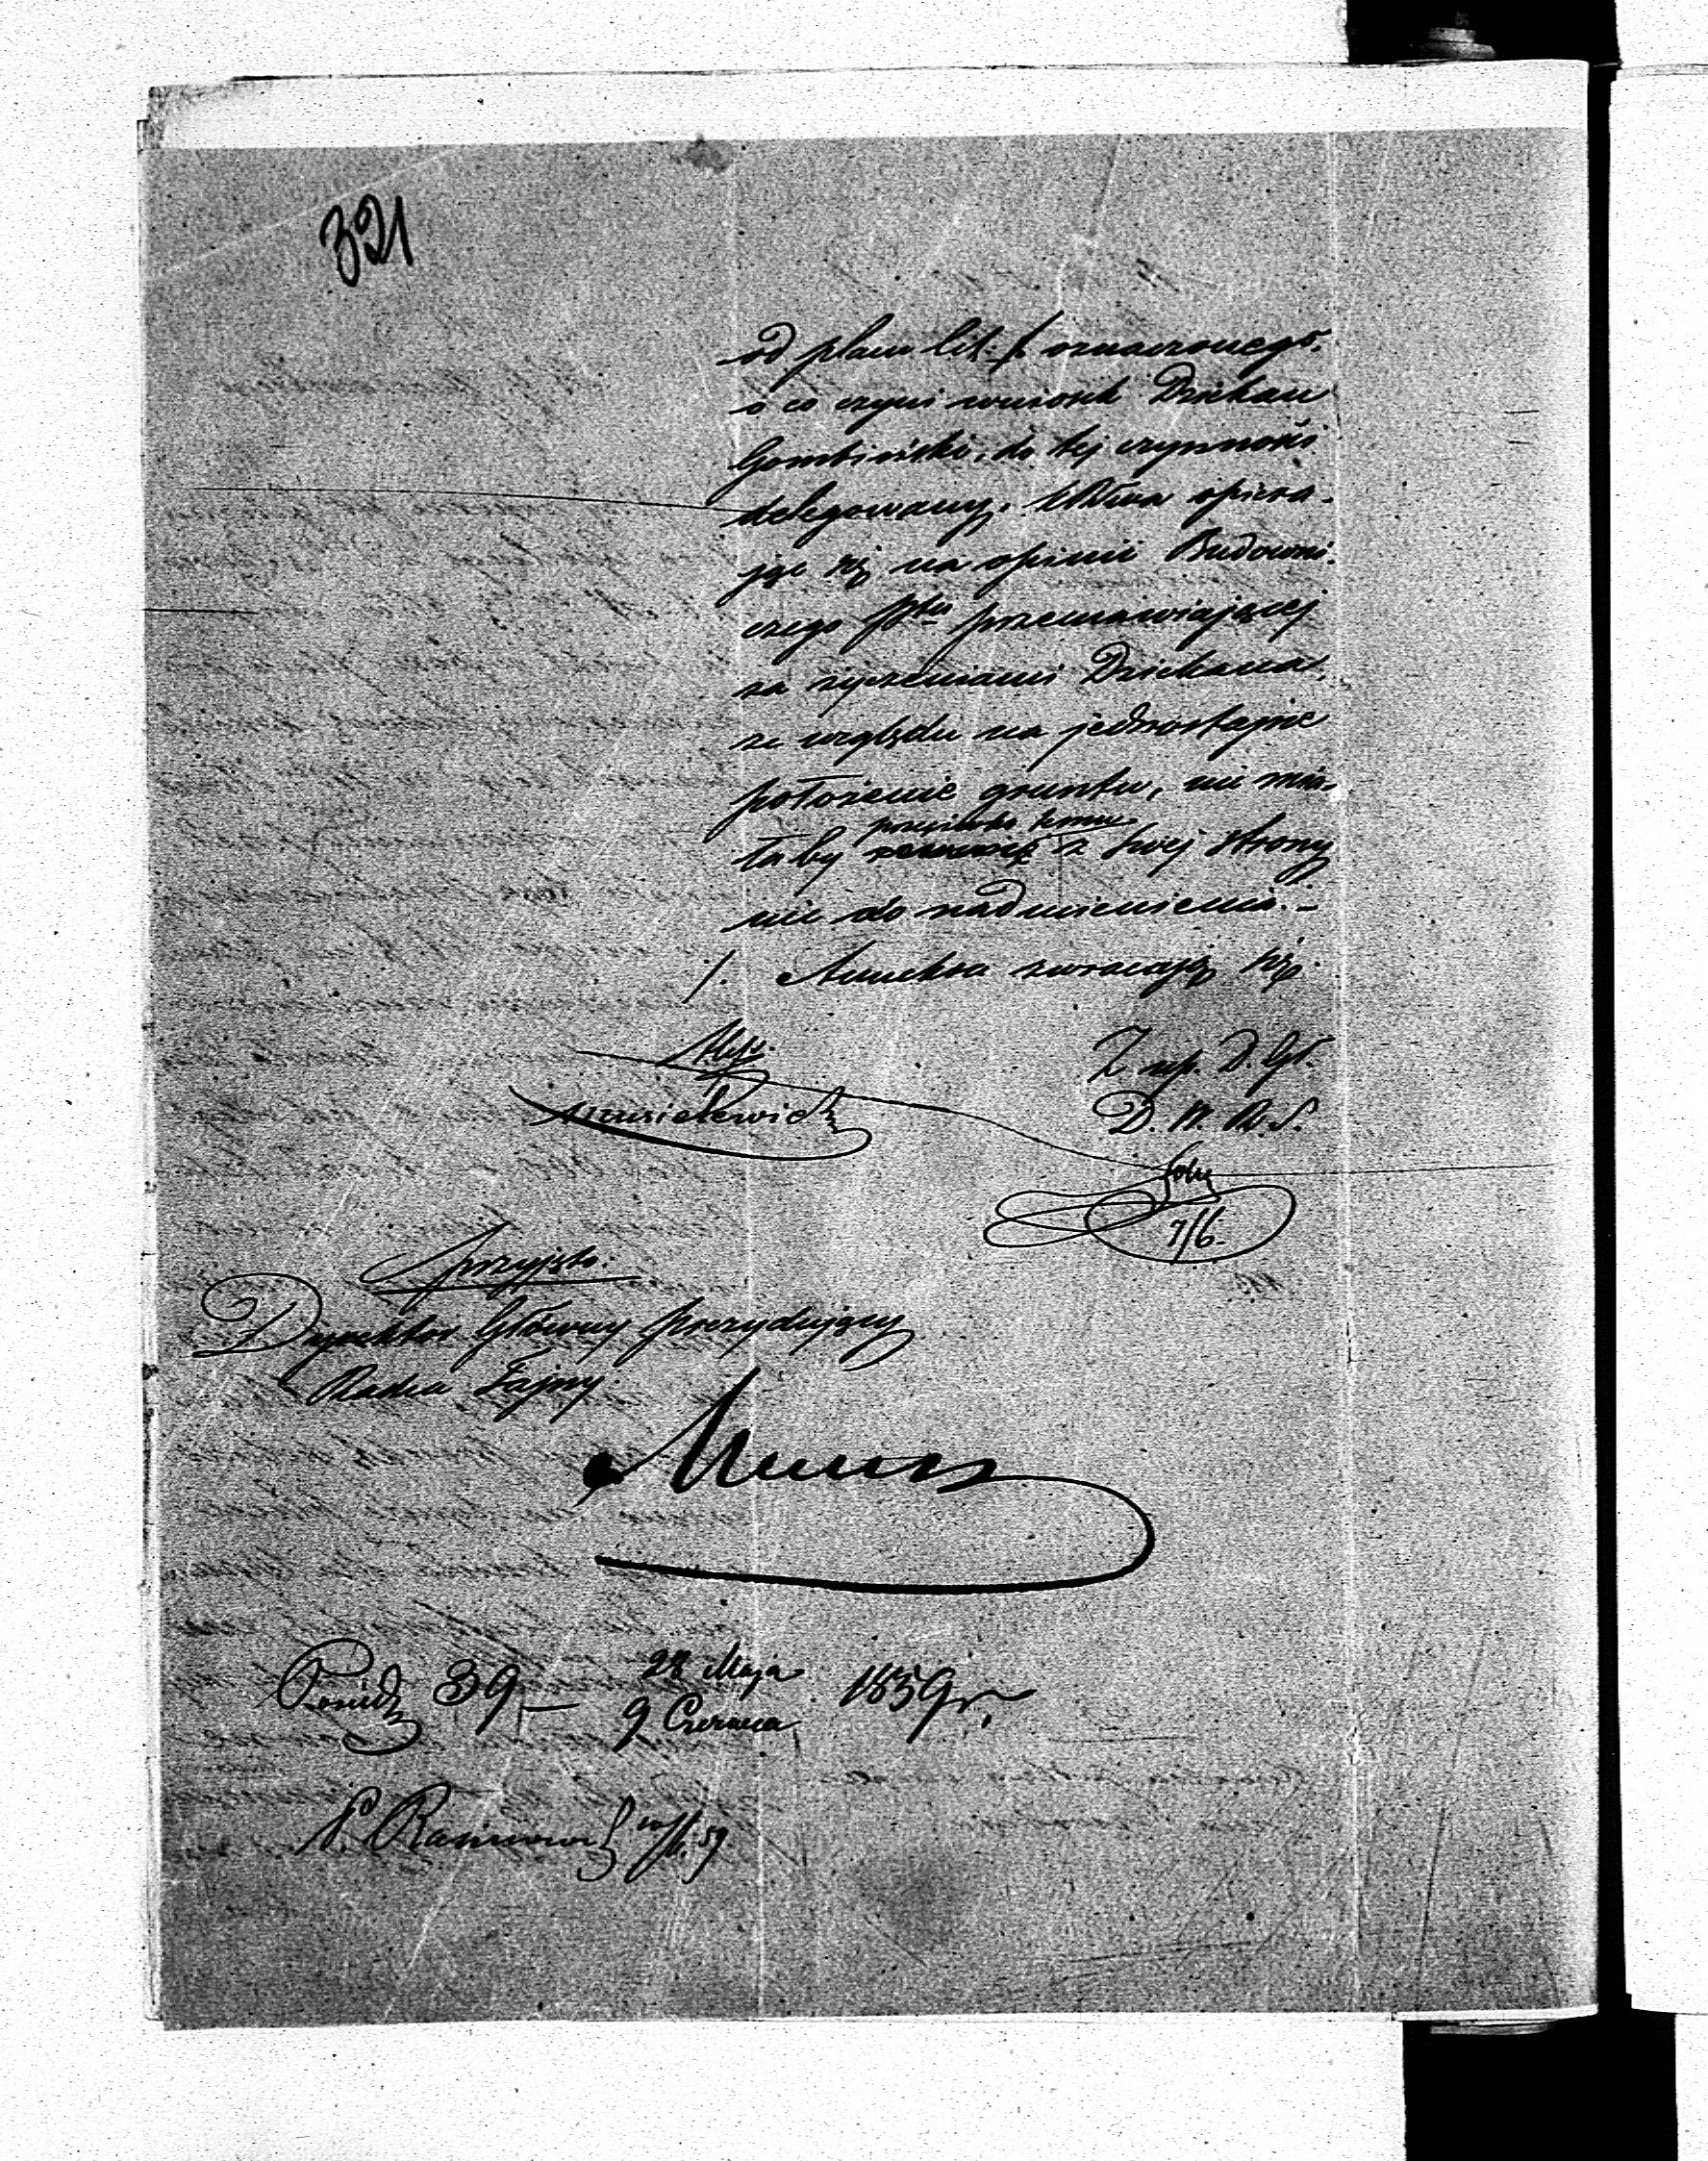 321
od placu lit: f. oznaczonego,
o co czyni wniosek Dziekan
Gombiński, do tej czynności
delegowany. Któraa opiera-
jąc się na opinii Budowni-
czego Ptu przemawiającej
za życzeniami Dziekana,
ze względu na jednostajne
położenie gruntu, nie mia-
przeciwko temu
łaby z swej strony
nic do nadmienienia.-
/. Annexa zwracają się.
Z up. D. Gł.
D. W. R. S.
7/6.
Przyjęto:
Dyrektor Główny Prezydujący
Radca Tajny
Posiedz 39 — 28 Maja
9 Czerwca 1859 r.